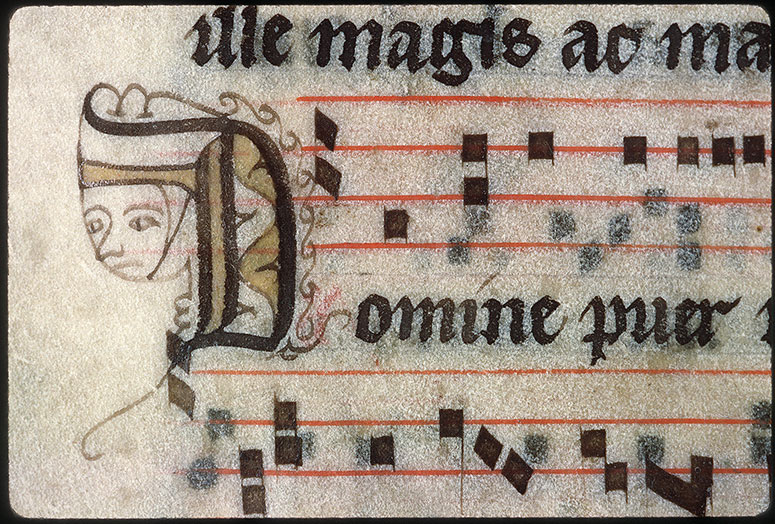 ille magis ac ma
Domine puer